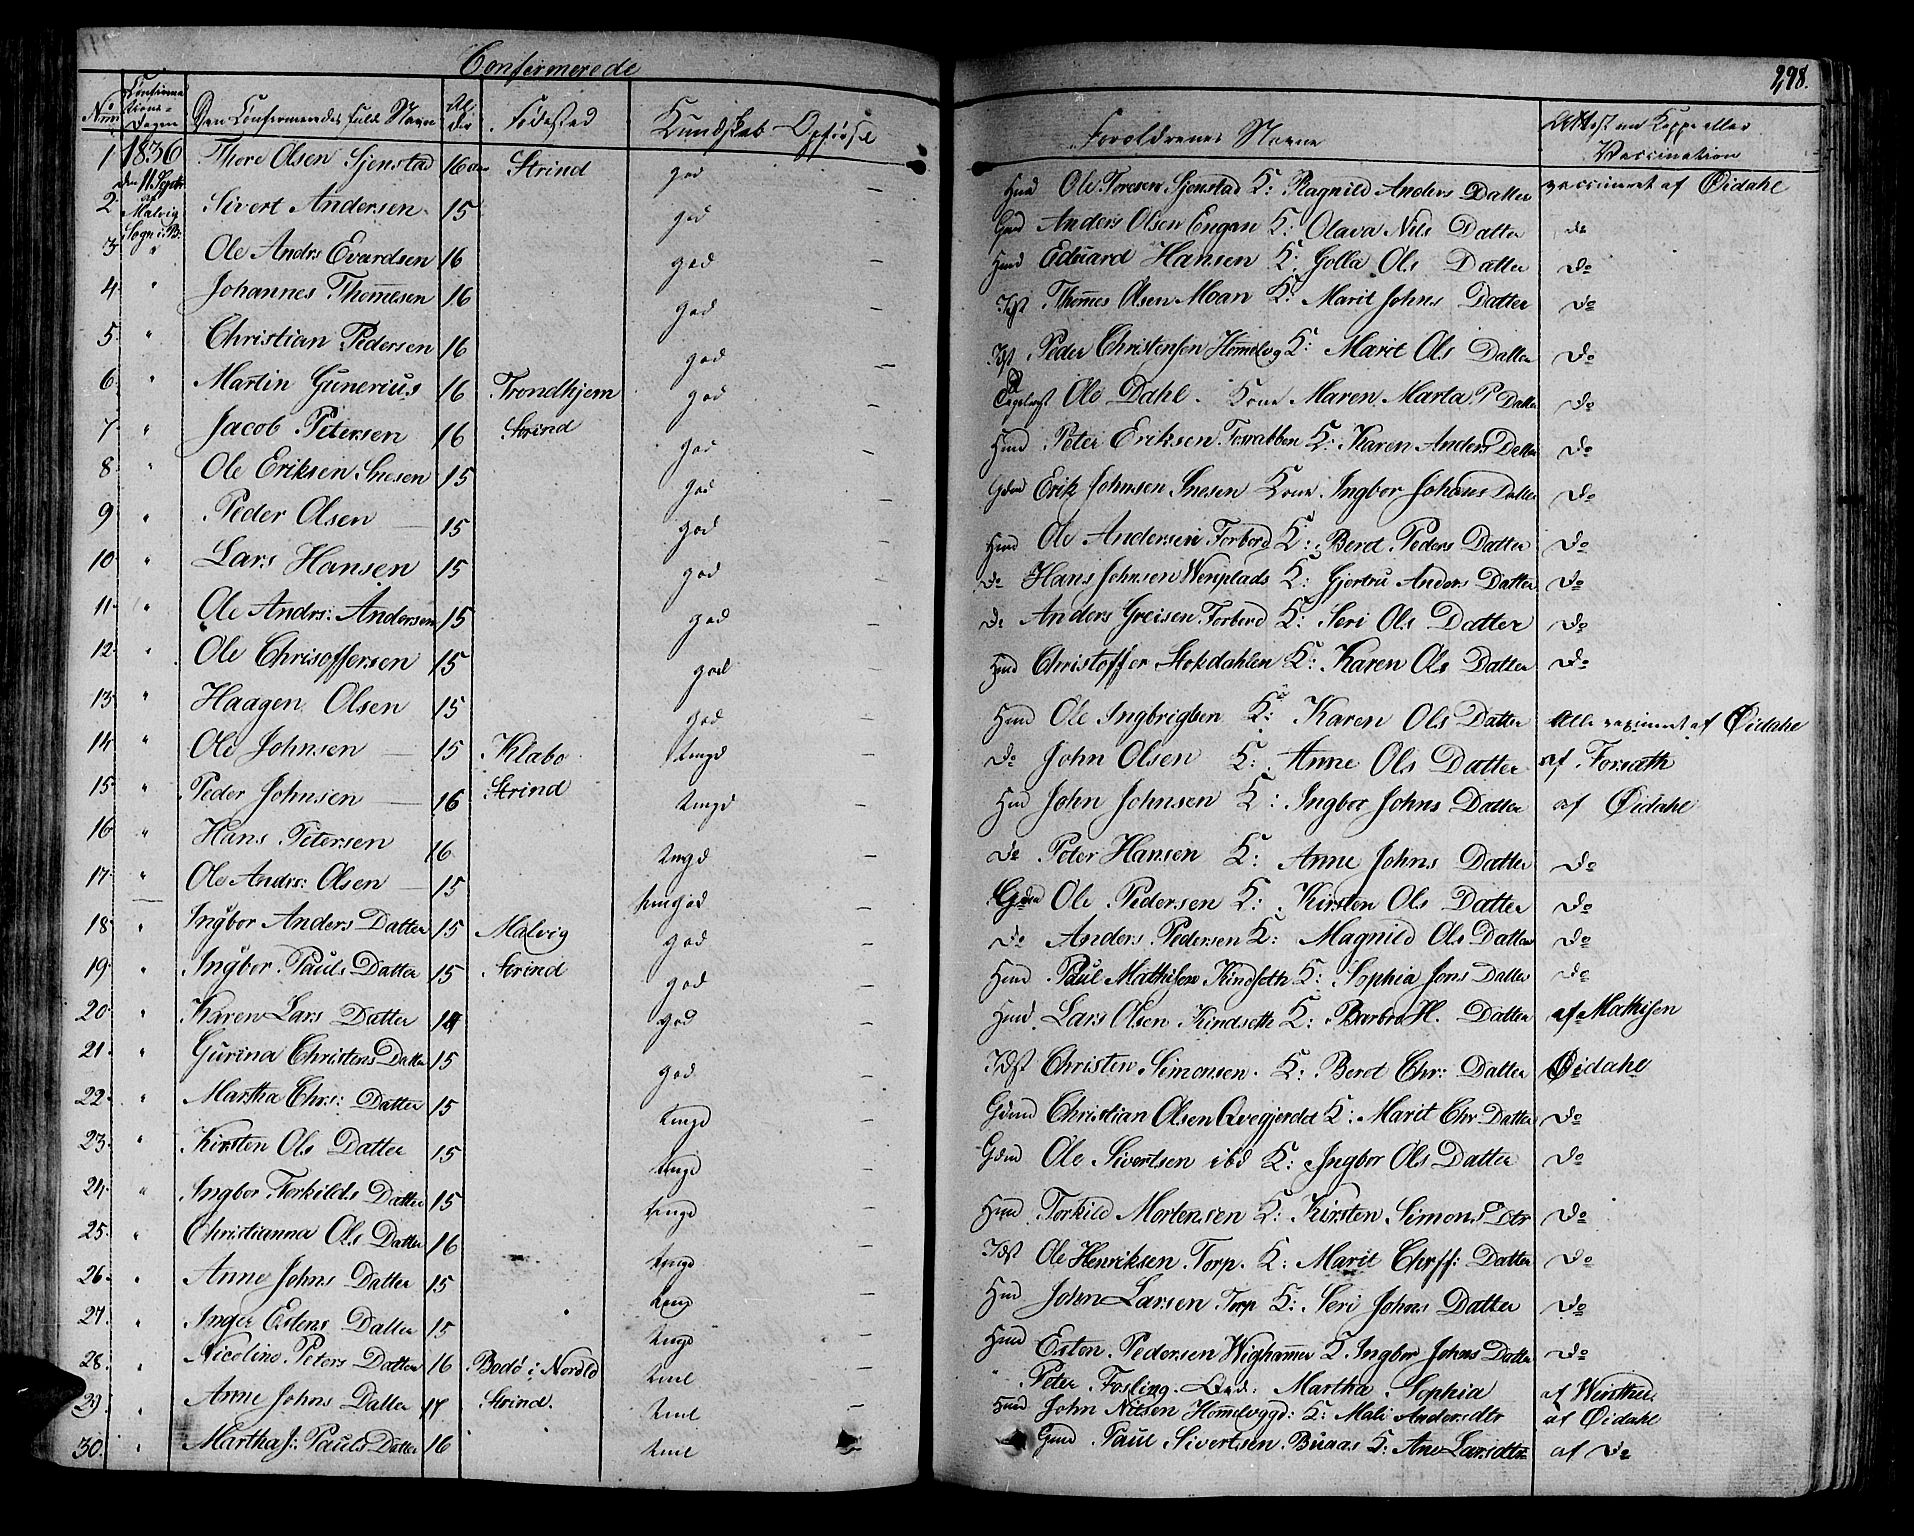 Confirmerede
298.
No Num
Confirmations-Dagen
Den Confirmeredes fulde Navn
Alder
Fødested
Kundskab - Opførsel
Forældrenes Navne
Attest om Koppe eller Vaccination
1 1836 den 11 Septr Thore Olsen Sjenstad 16 Strind god Hmd Ole Toresen Sjenstad K: Ragnild Anders Datter vaccineret af Øidahl
2 Malvig Sogn Sivert Andersen 15 god Gmd Anders Olsen Engan K: Olava Nils Datter do
3 " Ole Andrs Evardsen 16 god Hmd Eduard Hansen K: Golla Ols Datter Do
4 " Johannes Thomesen 16 god Idst Thomes Olsen Moan K: Marit Johns Datter Do
5 " Christian Pedersen 16 god Idst Peder Christensen Homelvg K: Marit Ols Datter Do
6 " Martin Gunerius 16 Trondhjem god Ole Dahl. Kone Maren Marta P Datter Do
7 " Jacob Petersen 16 Strind god Hmd Peter Eriksen K: Karen Anders Datter Do
8 " Ole Eriksen Snesen 15 god Gdm Erik Johnsen Snesen Kone Ingbor Johans Datter Do
9 " Peder Olsen 15 god Hmd Ole Andersen Forbord K: Berot Peders Datter Do
10 " Lars Hansen 15 god Do Hans Johnsen Wenplads K: Gjertru Anders Datter Do
11 " Ole Andrs: Andersen 15 god Do Anders Greisen Forbord K: Seri Ols Datter Do
12 " Ole Chrisoffersen 15 god Hmd Christoffer Stokdahlen K: Karen Ols Datter Do
13 " Haagen Olsen 15 god Hmd Ole Ingbrigtsen K: Karen Ols Datter Alle vaccineret af Øidahl
14 " Ole Johnsen 15 Klabo Do John Olsen K: Anne Ols Datter af Forsath
15 " Peder Johnsen 16 Strind Hmd John Johnsen K: Ingbor Johns Datter af Øidahl
16 " Hans Petersen 16 Do Peter Hansen K: Anne Johns Datter Do
17 " Ole Andrs: Olsen 15 Gdm Ole Pedersen K: Kirsten Ols Datter Do
18 " Ingbor Anders Datter 15 Malvig god Do Anders Pedersen K: Magnild Ols Datter Do
19 " Ingbor Pauls Datter 15 Strind god Hmd Paul Mathisen Kindseth K: Sophia Jons Datter Do
20 " Karen Lars Datter 14 god Hmd Lars Olsen Kindseth K: Barbro H. Datter af Mathisen
21 " Gurina Christens Datter 15 god Idst Christen Simonsen. K: Berot Chr: Datter Øidahl
22 " Martha Chrs: Datter 15 Gdmd Christian Olsen Qvegjerdet K: Marit Chr Datter Do
23 " Kirsten Ols Datter 15 Gdmd Ole Sivertsen ibd K: Ingbor Ols Datter Do
24 " Ingbor Torkilds Datter 15 Hmd Torkild Mortensen K: Kirsten Simons Dtr Do
25 " Christianna Ols Datter 16 Idst Ole Henriksen Torp. K: Marit Chrff: Datter Do
26 " Anne Johns Datter 15 Hmd John Larsen Torp K: Seri Johns Datter Do
27 " Inger Estens Datter 15 Hmd Esten Pedersen Wighammer K. Ingbor Johns Datter Do
28 " Nicoline Peters Datter 16 Bodø i Nordld " Peter Fosling. Martha Sophia af
29 " Anne Johns Datter 17 Strind. Hmd John Nilsen Homelvggd: K: Mali Andersdtr af Øidahl
30. " Martha J: Pauls Datter 16 Gmd Paul Sivertsen Buaas K: Ane Larsdtr af Do